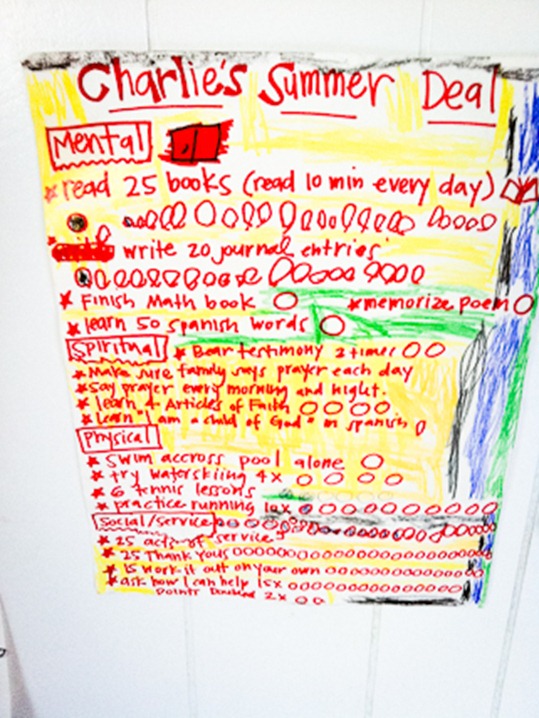 Charlie's Summer Deal
Mental
* read 25 books (read 10 min every day)
write 20 journal entries
* Finish Math book * memorize poem
* learn 50 spanish words
Spiritual * Bear testimony 2 times
* Make sure family says prayer each day
* Say prayer every morning and night.
* learn 4 Articles of Faith
* Learn "I am a child of God" in spanish
Physical
* swim accross pool alone
* try waterskiing 4x
* 6 tennis lessons
* practice running 10x
Social/service
* 25 acts of service
* 25 Thank yous
* 15 work it out on your own
* ask how I can help 15x
Points Doubled 2x